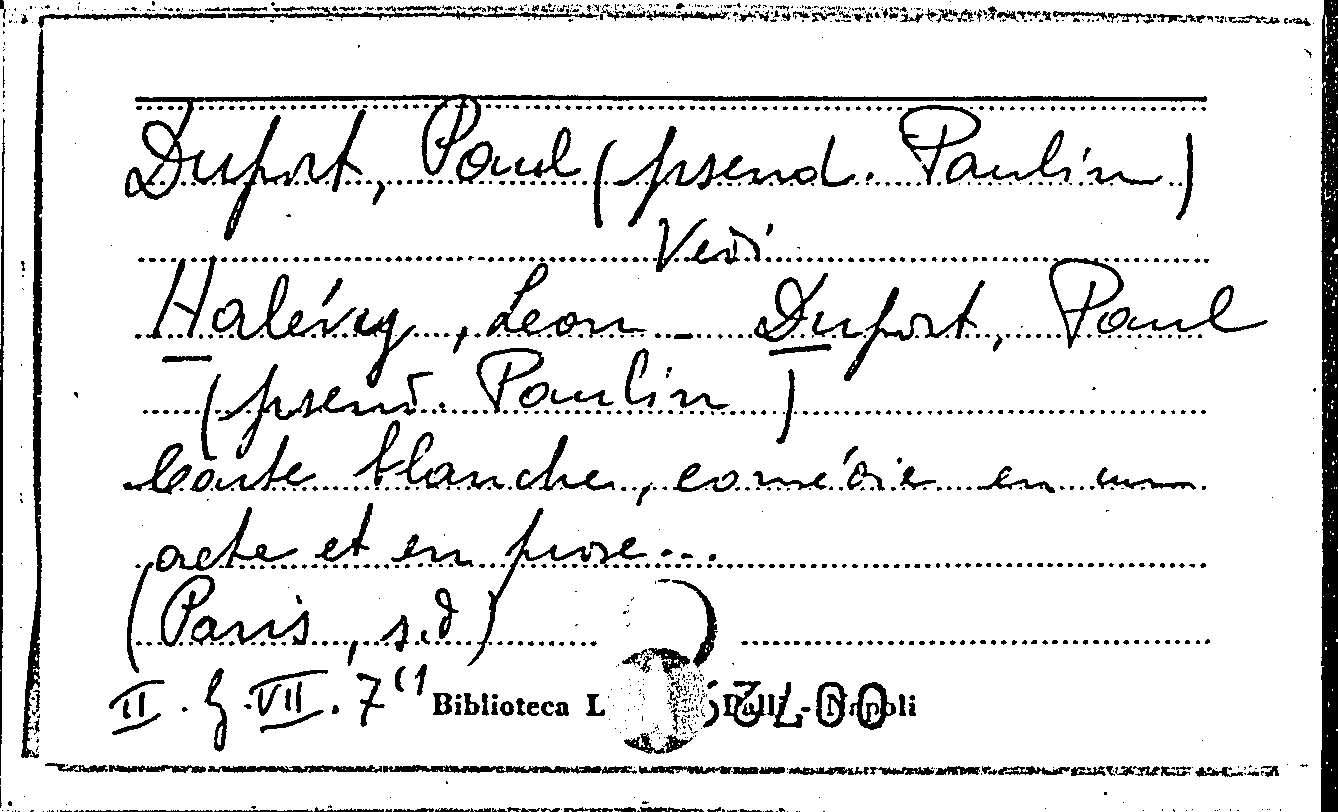 Duport, Paul (pseud. Paulin)
Vedi
Halévy, Leon - Duport, Paul
(pseud. Paulin)
Carte blanche, comédie en un
acte et en prose...
(Paris, s.d)
II. VII. 7(1 Biblioteca L - Napoli